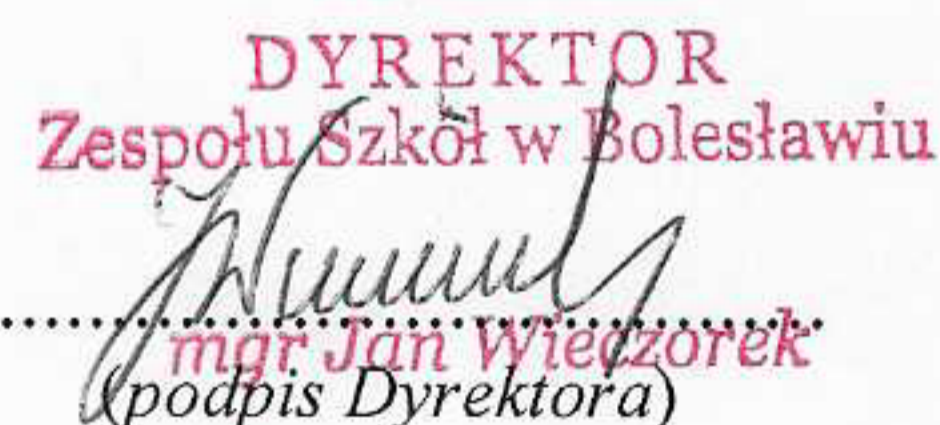 DYREKTOR
Zespołu Szkół w Bolesławiu
mgr Jan Wieczorek
(podpis Dyrektora)